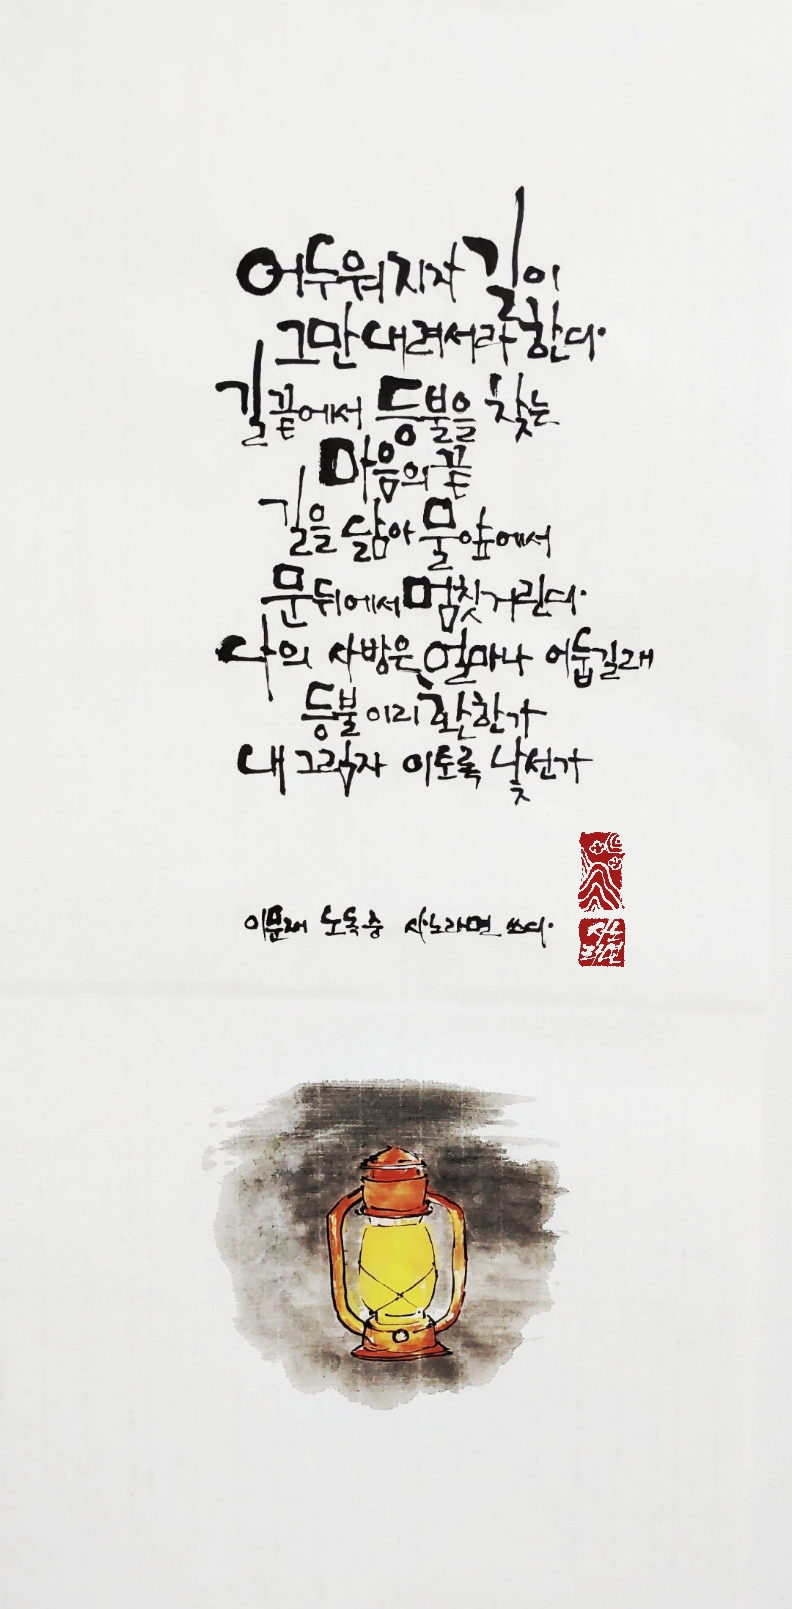 어두워지자 길이
그만 내려서라 한다.
길 끝에서 등불을 찾는
마음의 끝
길을 닮아 물 앞에서
문 뒤에서 멈칫거린다.
나의 사방은 얼마나 어둡길래
등불 이리 환한가
내 그림자 이토록 낯선가
이문재 노독 중 사노라면 쓰다.
사노
라면